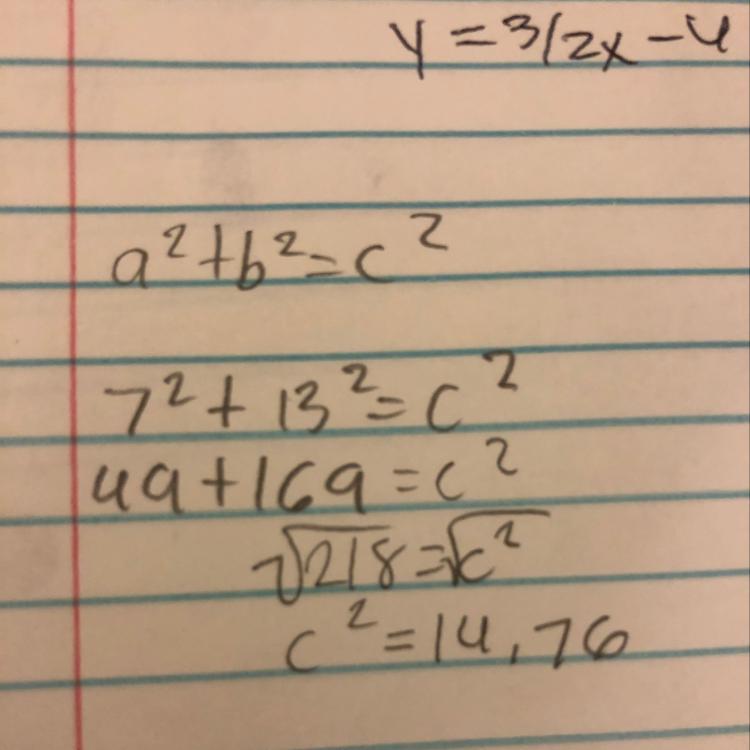 y = 3/2x - 4
a² + b² = c²
7² + 13² = c²
49 + 169 = c²
√218 = √c²
c² = 14.76